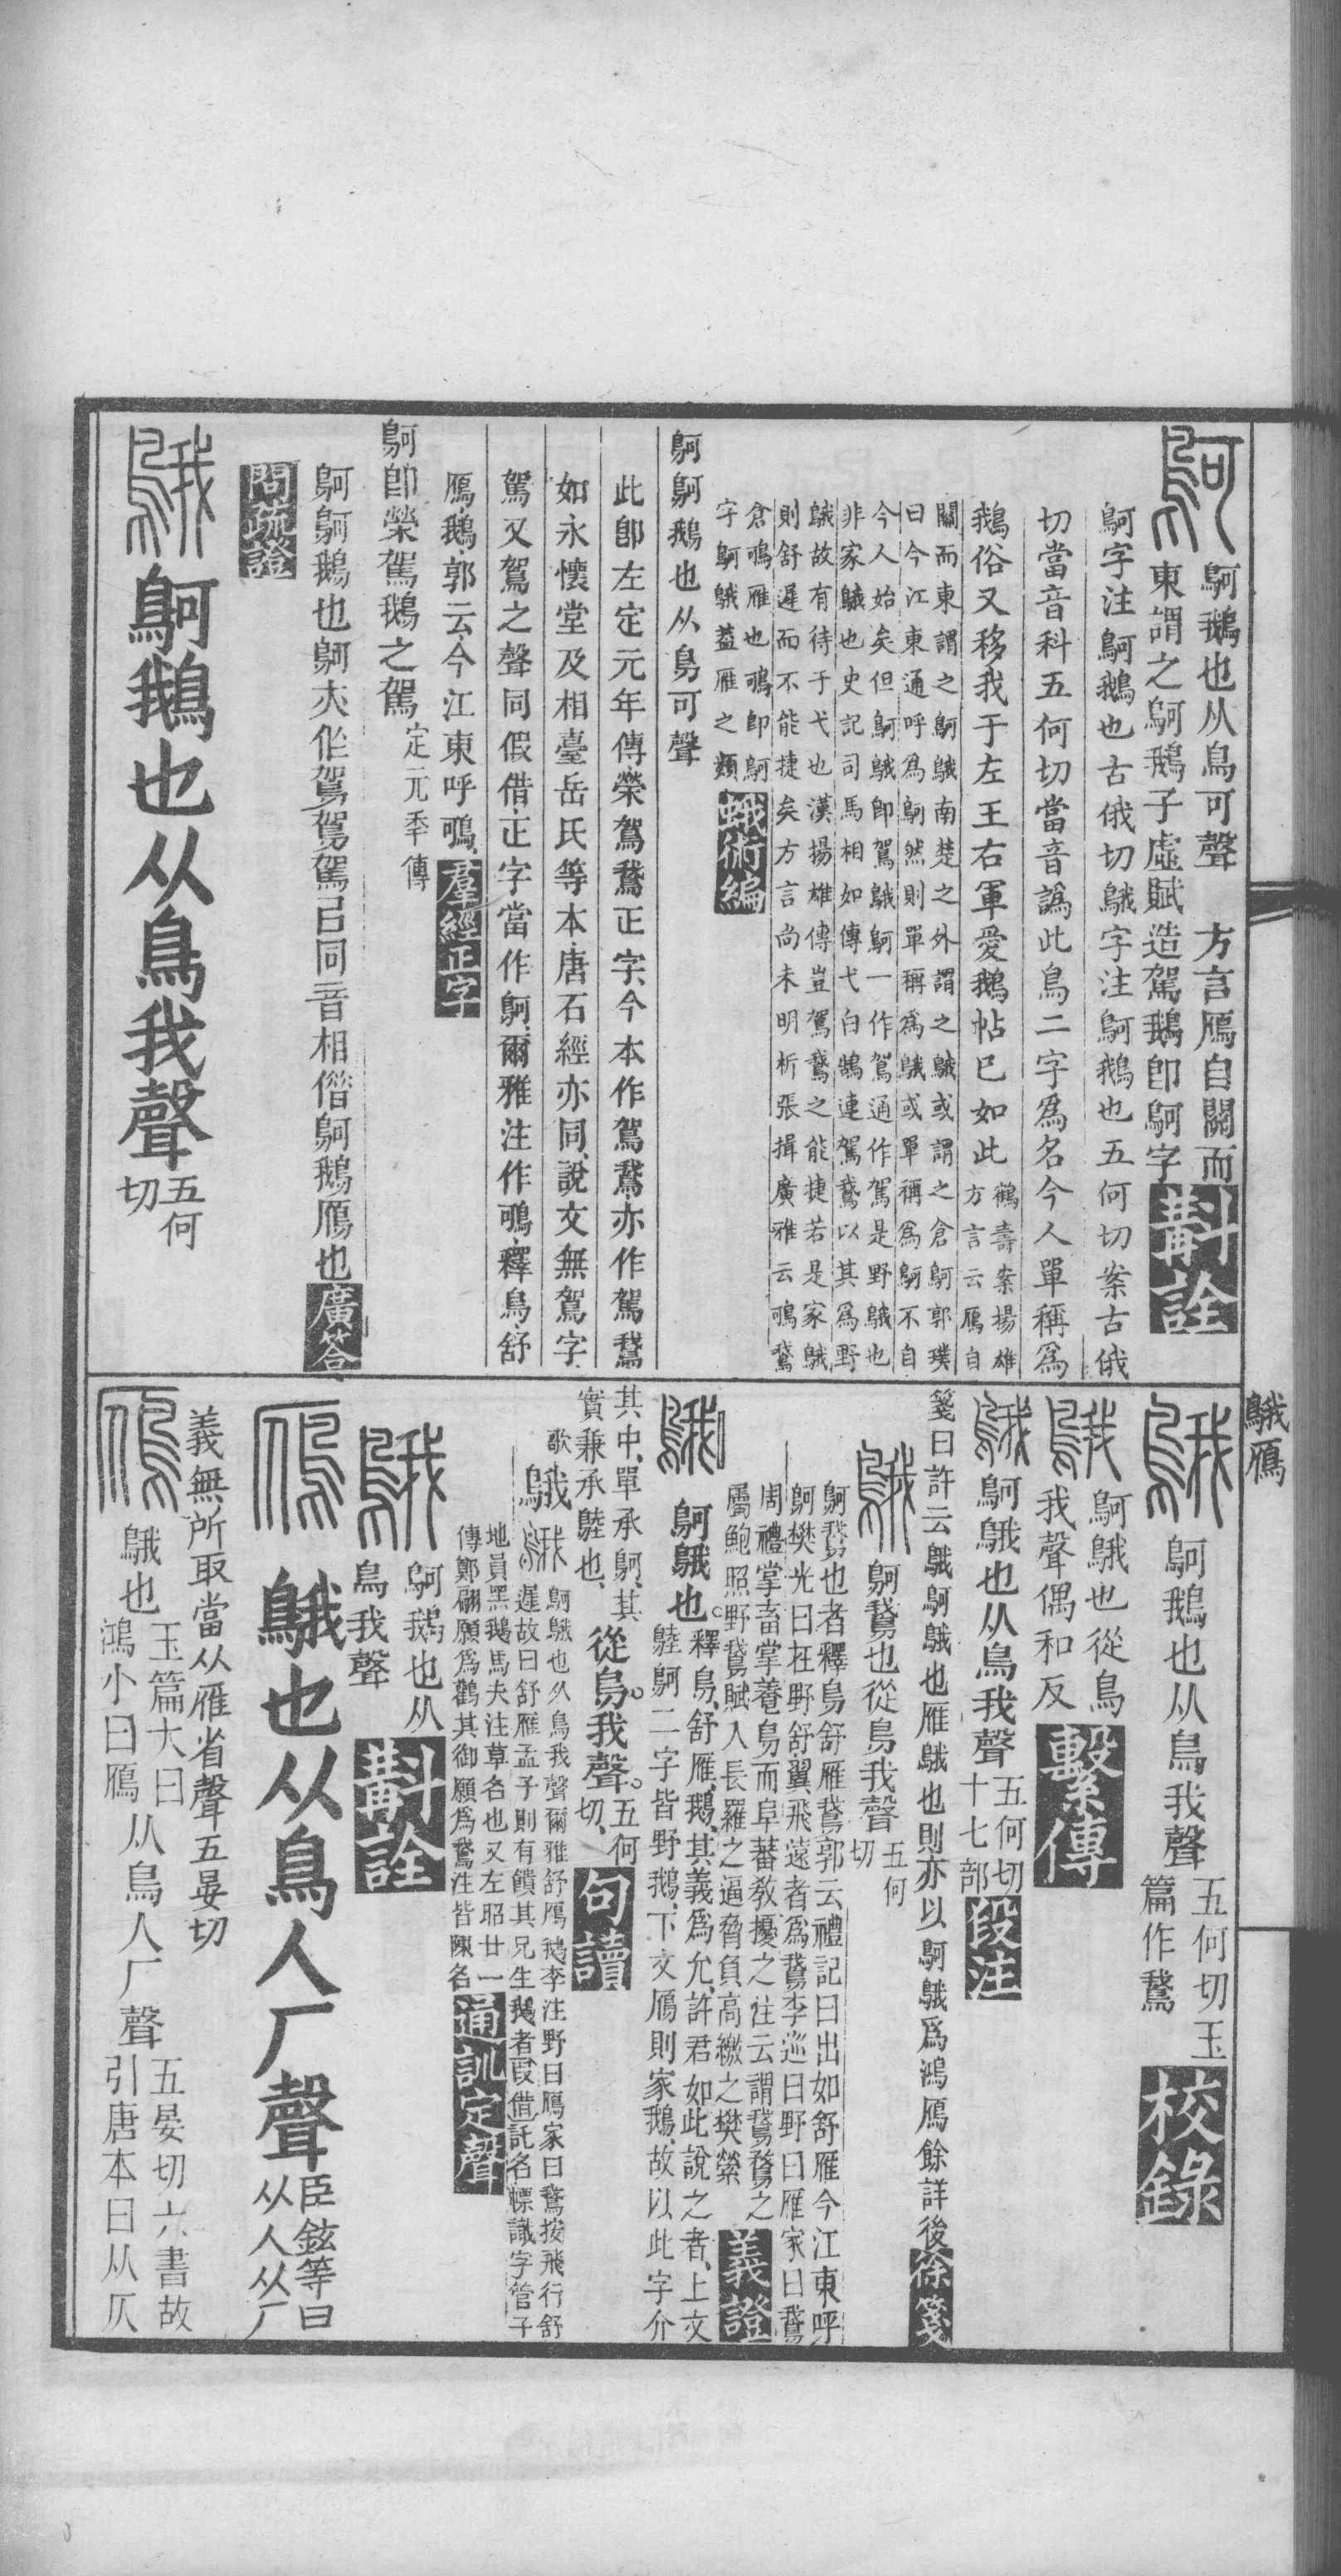 鴚鵝也从鳥可聲 方言鴈自關而
東謂之鴚鵝子虛賦造駕鵝卽鴚字斠詮
鴚字注鴚鵝也古俄切䳘字注鴚鵝也五何切案古俄
切當音科五何切當音譌此鳥二字爲名今人單稱爲
鵝俗又移我于左王右軍愛鵝帖已如此
鶴壽案揚雄
方言云鴈自
關而東謂之鴚䳘南楚之外謂之䳘或謂之倉鴚郭璞
曰今江東通呼爲鴚然則單稱爲䳘或單稱爲鴚不自
今人始矣但鴚䳘卽駕䳘鴚一作鴐通作駕是野䳘也
非家䳘也史記司馬相如傳弋白鵠連駕鵞以其爲野
䳘故有待于弋也漢揚雄傳豈駕鵞之能捷若是家䳘
則舒遲而不能捷矣方言尚未明析張揖廣雅云鳴鵞
倉鳴雁也鳴卽鴚
字鴚䳘葢雁之類蛾術編
鴚鴚鵝也从鳥可聲
此卽左定元年傳榮鴐鵞正字今本作駕鵞亦作鴐鵞
如永懷堂及相臺岳氏等本唐石經亦同說文無鴐字
駕又鴐之聲同假借正字當作鴚爾雅注作鳴釋鳥舒
鴈鵝郭云今江東呼鳴羣經正字
鴚卽榮駕鵝之駕定元秊傳
鴚鴚鵝也鴚亣作鴐鴐駕㠯同音相偕鴚鵝鴈也廣答
問疏證
鴚鵝也从鳥我聲五何
切
䳘鴈
鴚鵝也从鳥我聲五何切玉
篇作鵞校錄
鴚䳘也從鳥
我聲偶和反繫傳
鴚䳘也从鳥我聲五何切
十七部段注
箋曰許云䳘鴚䳘也雁䳘也則亦以鴚䳘爲鴻鴈餘詳後徐箋
鴚鵞也從鳥我聲五何
切
鴚鵞也者釋鳥舒雁鵞郭云禮記曰出如舒雁今江東呼
鴚樊光曰在野舒翼飛遠者爲鵞李巡曰野曰雁家曰鵞
周禮掌畜掌養鳥而阜蕃敎擾之注云謂鵞鶩之
屬鮑照野鵞賦入長羅之逼脅負高繳之樊縈義證
鴚䳘也。釋鳥、舒雁、鵝、其義爲允、許君如此說之者、上文
鵱鴚二字皆野鵝、下文鴈則家鵝、故以此字介
其中、單承鴚、其
實兼承鵱也、從鳥。我聲。五何
切、句讀
歌
䳘鴚䳘也从鳥我聲爾雅舒鴈鵝李注野曰鴈家曰鵞按飛行舒
遲故曰舒雁孟子則有饋其兄生鵝者叚借託名幖識字管子
地員黑鵝馬夫注草名也又左昭廿一
傳鄭翩願爲鸛其御願爲鵞注皆陳名通訓定聲
鴚鵝也从
鳥我聲斠詮
䳘也从鳥人厂聲臣鉉等曰
从人从厂
義無所取當从雁省聲五晏切
䳘也玉篇大曰
鴻小曰鴈从鳥人厂聲五晏切六書故
引唐本曰从仄